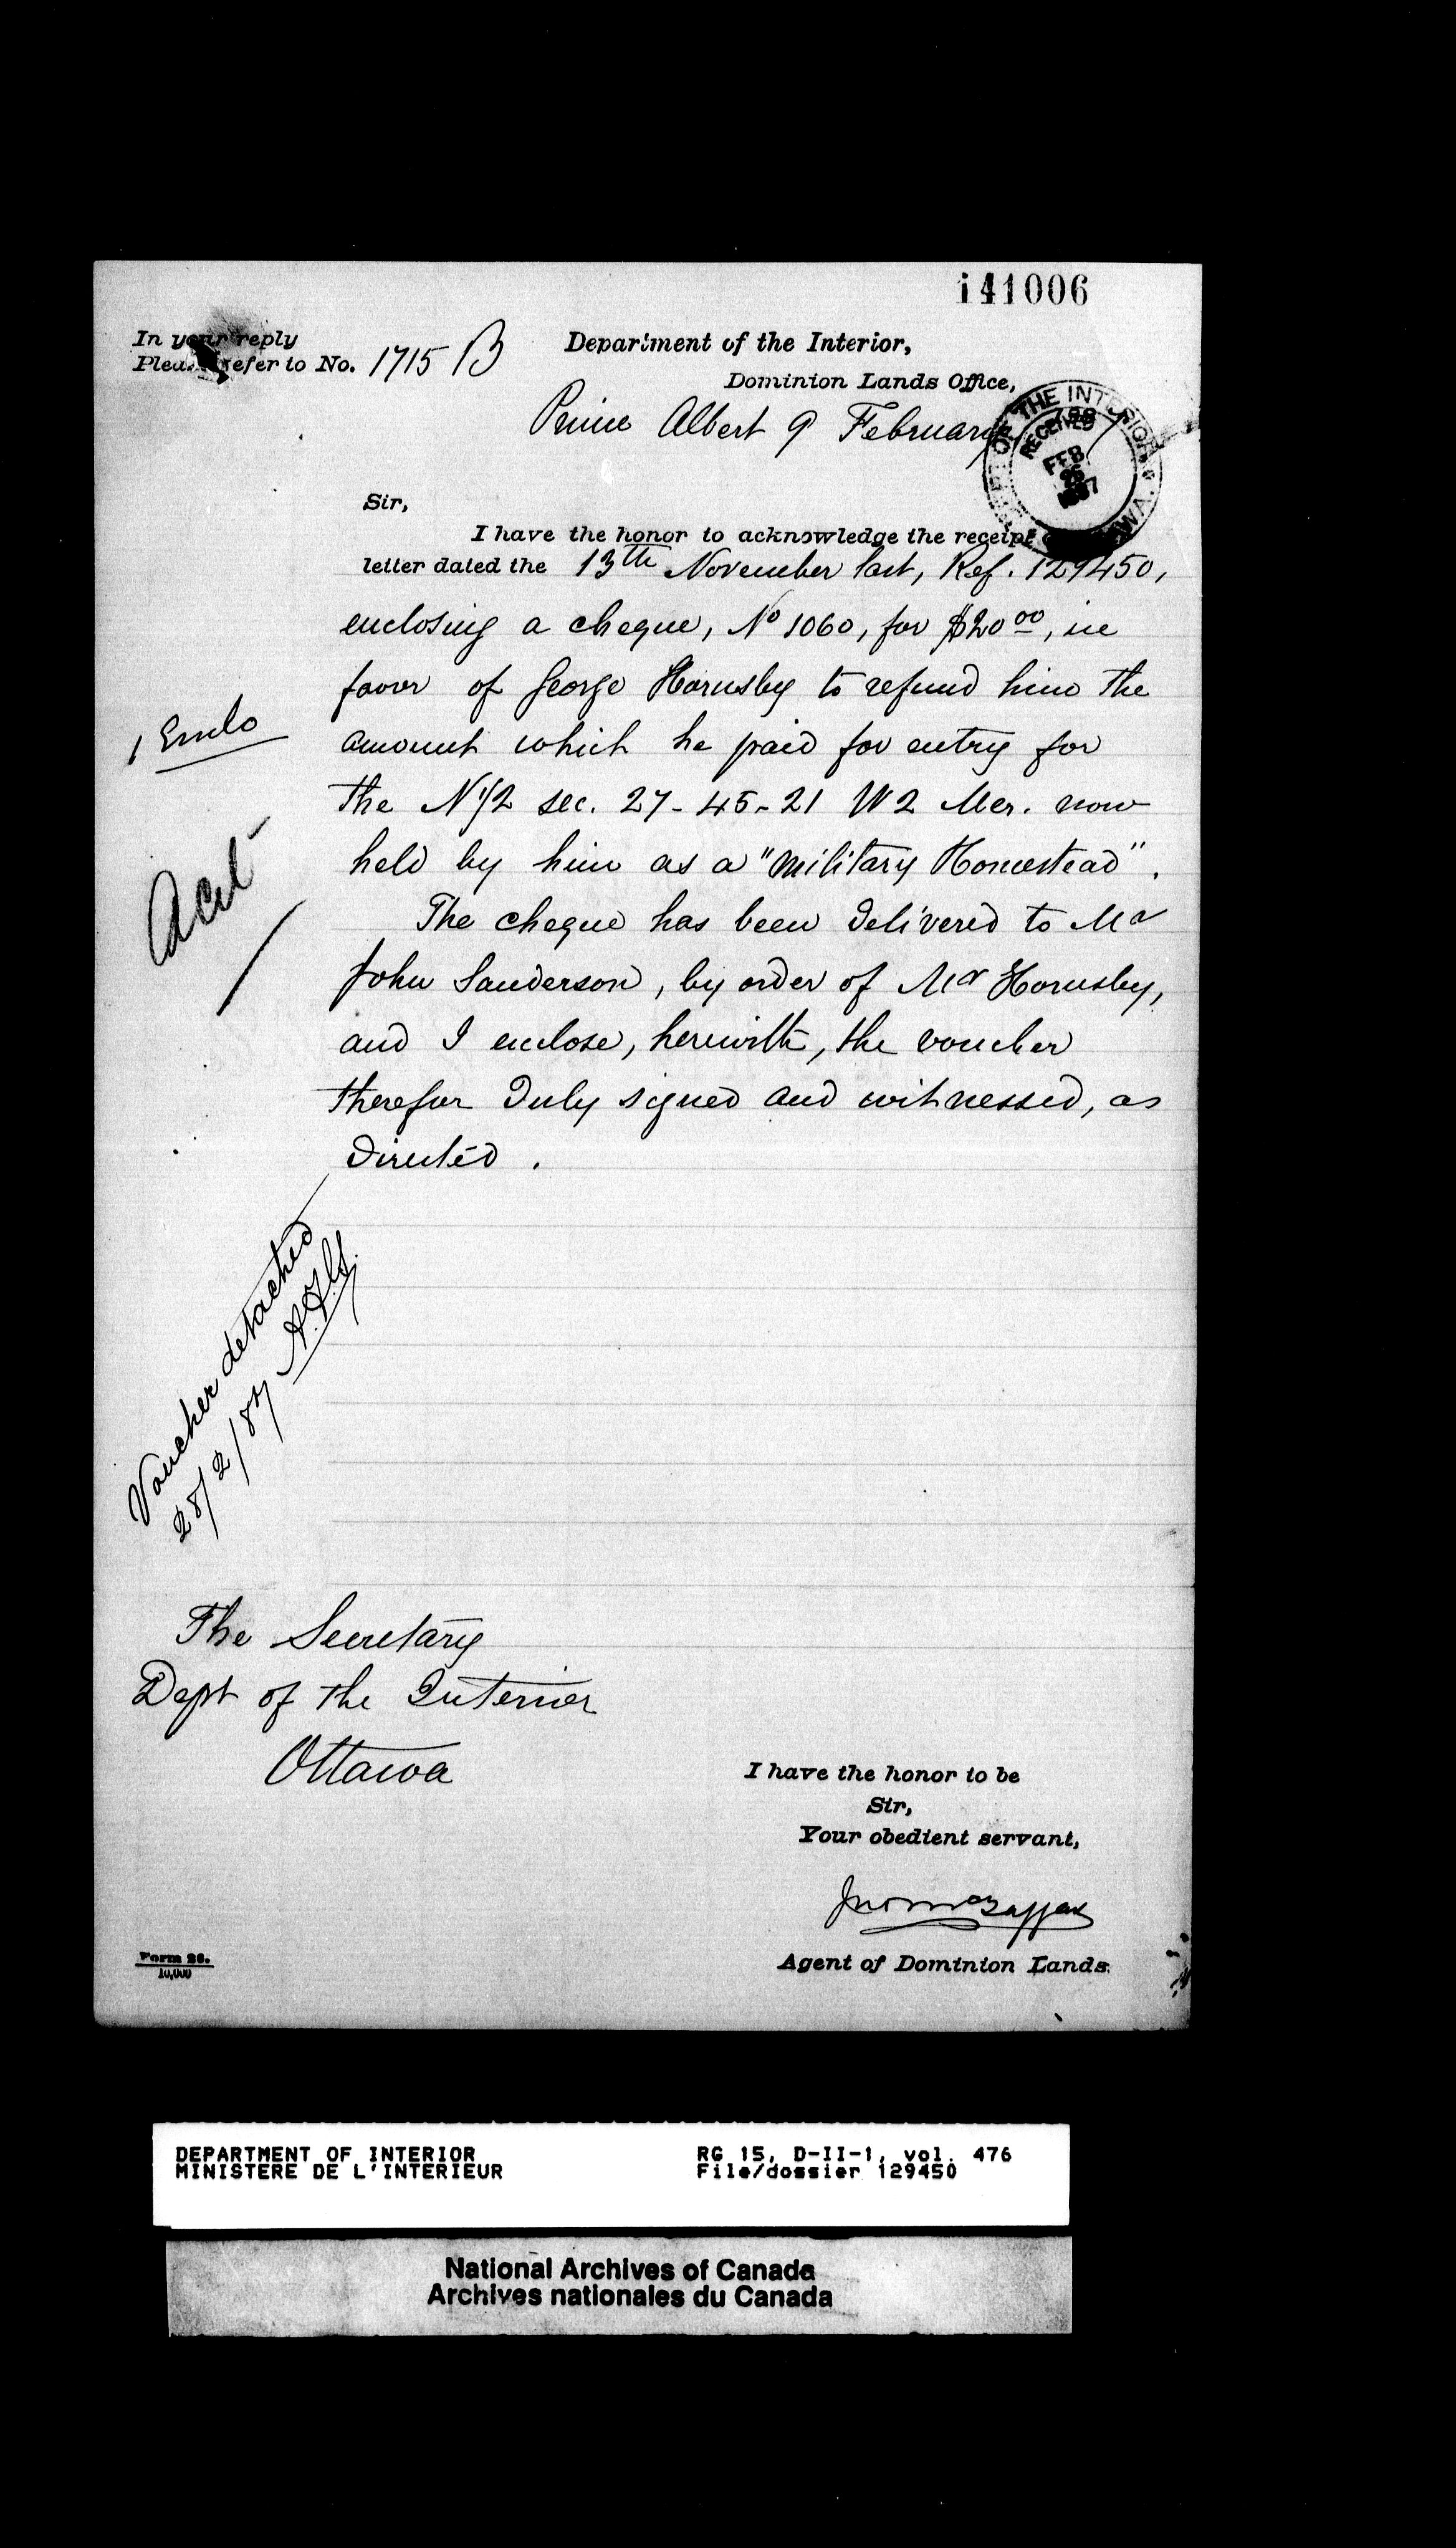 141006
In your reply
Please refer to No. 1715 B
Department of the Interior,
Dominion Lands Office,
Prince Albert 9 February
THE INTERIOR
RECEIVED
FEB
26
1887
Sir,
I have the honor to acknowledge the receipt
letter dated the 13th November last, Ref. 129450,
enclosing a cheque, No 1060, for $20 00, in
favor of George Hornsby to refund him the
amount which he paid for entry for
the N 1/2 sec. 27-45-21 W2 Mer. now
held by him as a "Military Homestead".
The cheque has been delivered to Mr
John Sanderson, by order of Mr Hornsby,
and I enclose, herewith, the voucher
therefor duly signed and witnessed, as
directed.
1 Enclo
Voucher detached
28/2/87
The Secretary
Dept of the Interior
Ottawa
I have the honor to be
Sir,
Your obedient servant,
Agent of Dominion Lands.
Form 26.
10,000
DEPARTMENT OF INTERIOR
MINISTERE DE L'INTERIEUR
RG 15, D-II-1, vol. 476
File/dossier 129450
National Archives of Canada
Archives nationales du Canada